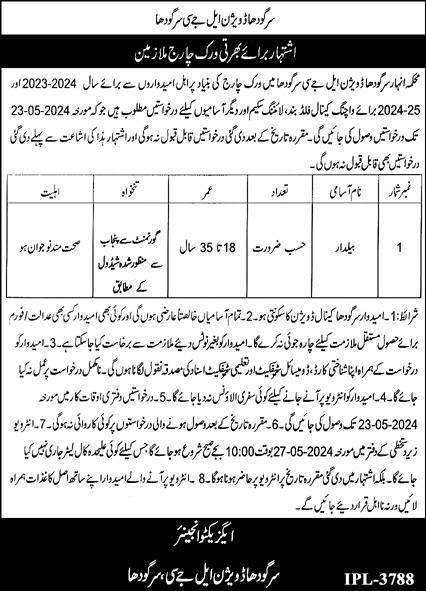 سرگودھا ڈویژن ایل جے سی سرگودھا
اشتہار برائے بھرتی ورک چارج ملازمین
محکمہ انہار سرگودھا ڈویژن ایل جے سی سرگودھا میں ورک چارج کی بنیاد پر اہل امیدواروں سے برائے سال 2024-2023 اور
2024-25 برائے واچنگ کینال فلڈ بند، لائننگ سکیم اور دیگر آسامیوں کیلئے درخواستیں مطلوب ہیں جو کہ مورخہ 2024-05-23
تک درخواستیں وصول کی جائیں گی۔ مقررہ تاریخ کے بعد دی گئی درخواستیں قابل قبول نہ ہوگی اور اشتہار ہذا کی اشاعت سے پہلے دی گئی
درخواستیں بھی قابل قبول نہ ہونگی۔
نمبر شمار نام آسامی تعداد عمر تنخواہ اہلیت
1 بیلدار حسب ضرورت 18 تا 35 سال گورنمنٹ سے پنجاب سے منظور شدہ شیڈول کے مطابق صحت مند نوجوان ہو
شرائط: 1۔ امیدوار سرگودھا کینال ڈویژن کا سکونتی ہو۔ 2۔ تمام آسامیاں خالصتاً عارضی ہوں گی اور کوئی بھی امیدوار کسی بھی عدالت/فورم
برائے حصول مستقل ملازمت کیلئے چارہ جوئی نہ کرے گا۔ امیدوار کو بغیر نوٹس دیئے ملازمت سے برخاست کیا جا سکتا ہے۔ 3۔ امیدوار کو
درخواست کے ہمراہ اپنا شناختی کارڈ، ڈومیسائل سرٹیفکیٹ اور تعلیمی سرٹیفکیٹ اسناد کی مصدقہ نقول لگانا ہوں گی۔ نامکمل درخواست پر عمل نہ کیا
جائے گا۔ 4۔ امیدوار کو انٹرویو پر آنے جانے کیلئے کوئی سفری الاؤنس نہ دیا جائے گا۔ 5۔ درخواستیں دفتری اوقات کار میں مورخہ
2024-05-23 تک وصول کی جائیں گی۔ 6۔ مقررہ تاریخ کے بعد وصول ہونے والی درخواستوں پر کوئی کاروائی نہ ہوگی۔ 7۔ انٹرویو
زیر دستخطی کے دفتر میں مورخہ 2024-05-27 بوقت 10:00 بجے صبح شروع ہو جائے گا جس کیلئے کوئی علیحدہ کال لیٹر جاری نہیں کیا
جائے گا۔ بلکہ اشتہار میں دی گئی مقررہ تاریخ پر انٹرویو پر حاضر ہونا ہوگا۔ 8۔ انٹرویو پر آنے والے امیدوار اپنے ساتھ اصل کاغذات ہمراہ
لائیں ورنہ نااہل قرار دیئے جائیں گے۔
ایگزیکٹو انجینئر
سرگودھا ڈویژن ایل جے سی، سرگودھا
IPL-3788